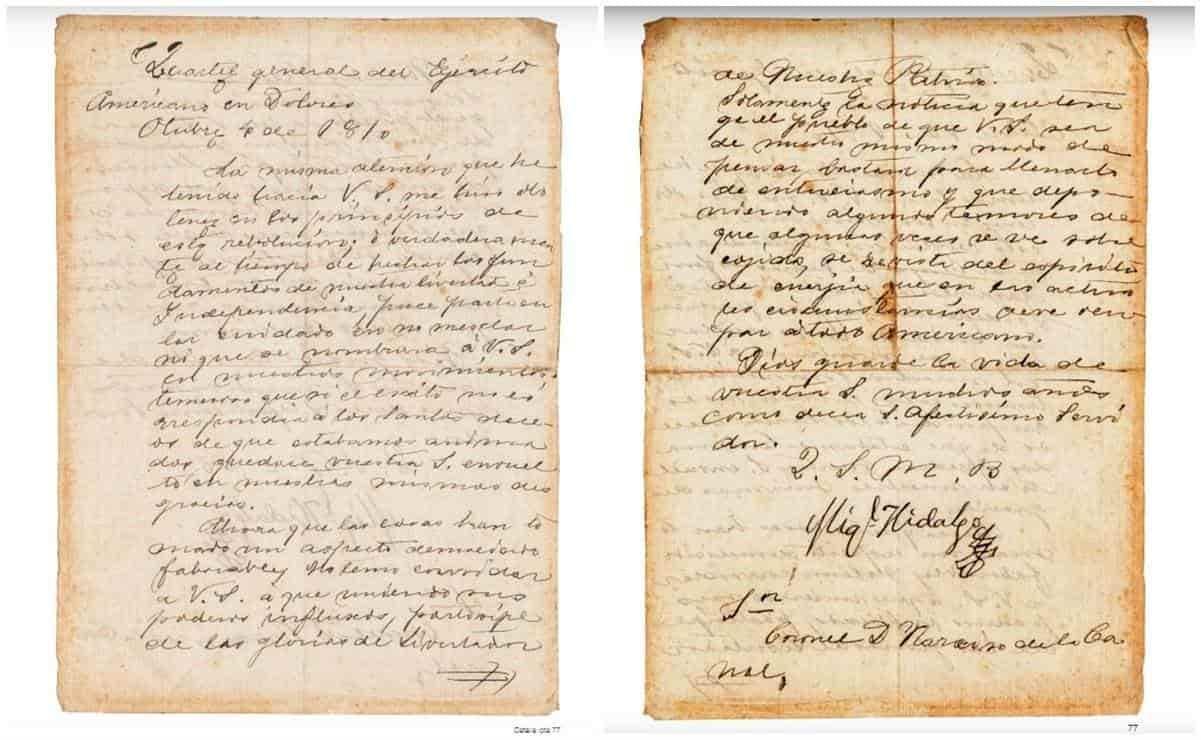 Quartel general del Ejército
Américano en Dolores
Otubre 4 de 1810
La misma atención que he
tenido hacia V. S. me hiso ab
tener en los principios de
esta revolución; é verdadera men
te al tiempo de hechar los fun
damentos de nuestra livertad é
Independencia puse parti cu
lar cuidado en no mesclar
ni que se nombrara á V. S.
en nuestros movimientos
temeroso que si el exito no co
rrespondía á los santos dece
os de que estabamos anima
dos quedase vuestra S. envuel
to en nuestras mismas des
gracias.
Ahora que las cosas han to
mado un aspecto demaciado
faborable y no temo convidar
a V. S. á que uniendo sus
poderosos influxos, participe
de las glorias de Livertador
Catara ota 77
de Nuestra Patria.
Solamente la noticia que ten
ga el pueblo de que V. S. sea
de nuestro mismo modo de
pensar bastara para llenarlo
de entuciasmo y que depo
niendo algunos temores de
que algunas veces se ve sobre
cojido, se revista del espiritu
de enerjia que en las actua
les circunstancias deve ocu
par á todo Américano.
Dios guarde la vida de
vuestra S. muchos años
como decea S. Afectisimo Servi
dor.
Q. S. M. B
Mig.l Hidalgo
Sor
Coronel D Narciso de la Ca
nal,
77